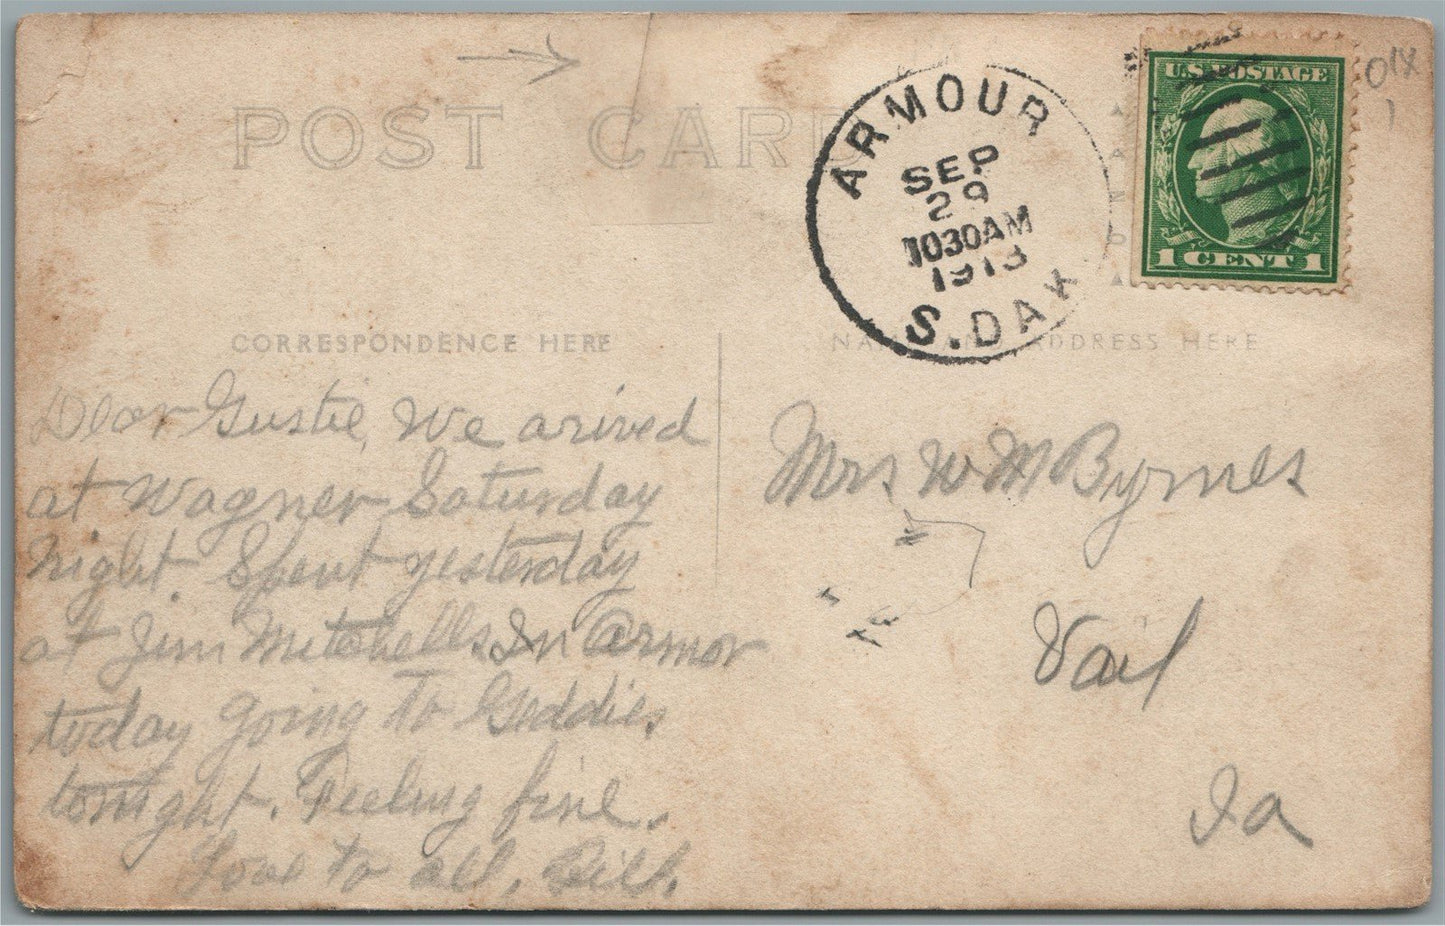 POST CARD
ARMOUR
SEP
29
1030AM
1913
S. DAK
U.S. POSTAGE
1 CENT 1
CORRESPONDENCE HERE
NAME AND ADDRESS HERE
Dear Gustie, We arived
at Wagner Saturday
night Spent yesterday
at Jim Mitchells In Armor
today going to Geddies
tonight. Feeling fine.
Love to all,
Mrs W M Byrnes
Vail
Ia